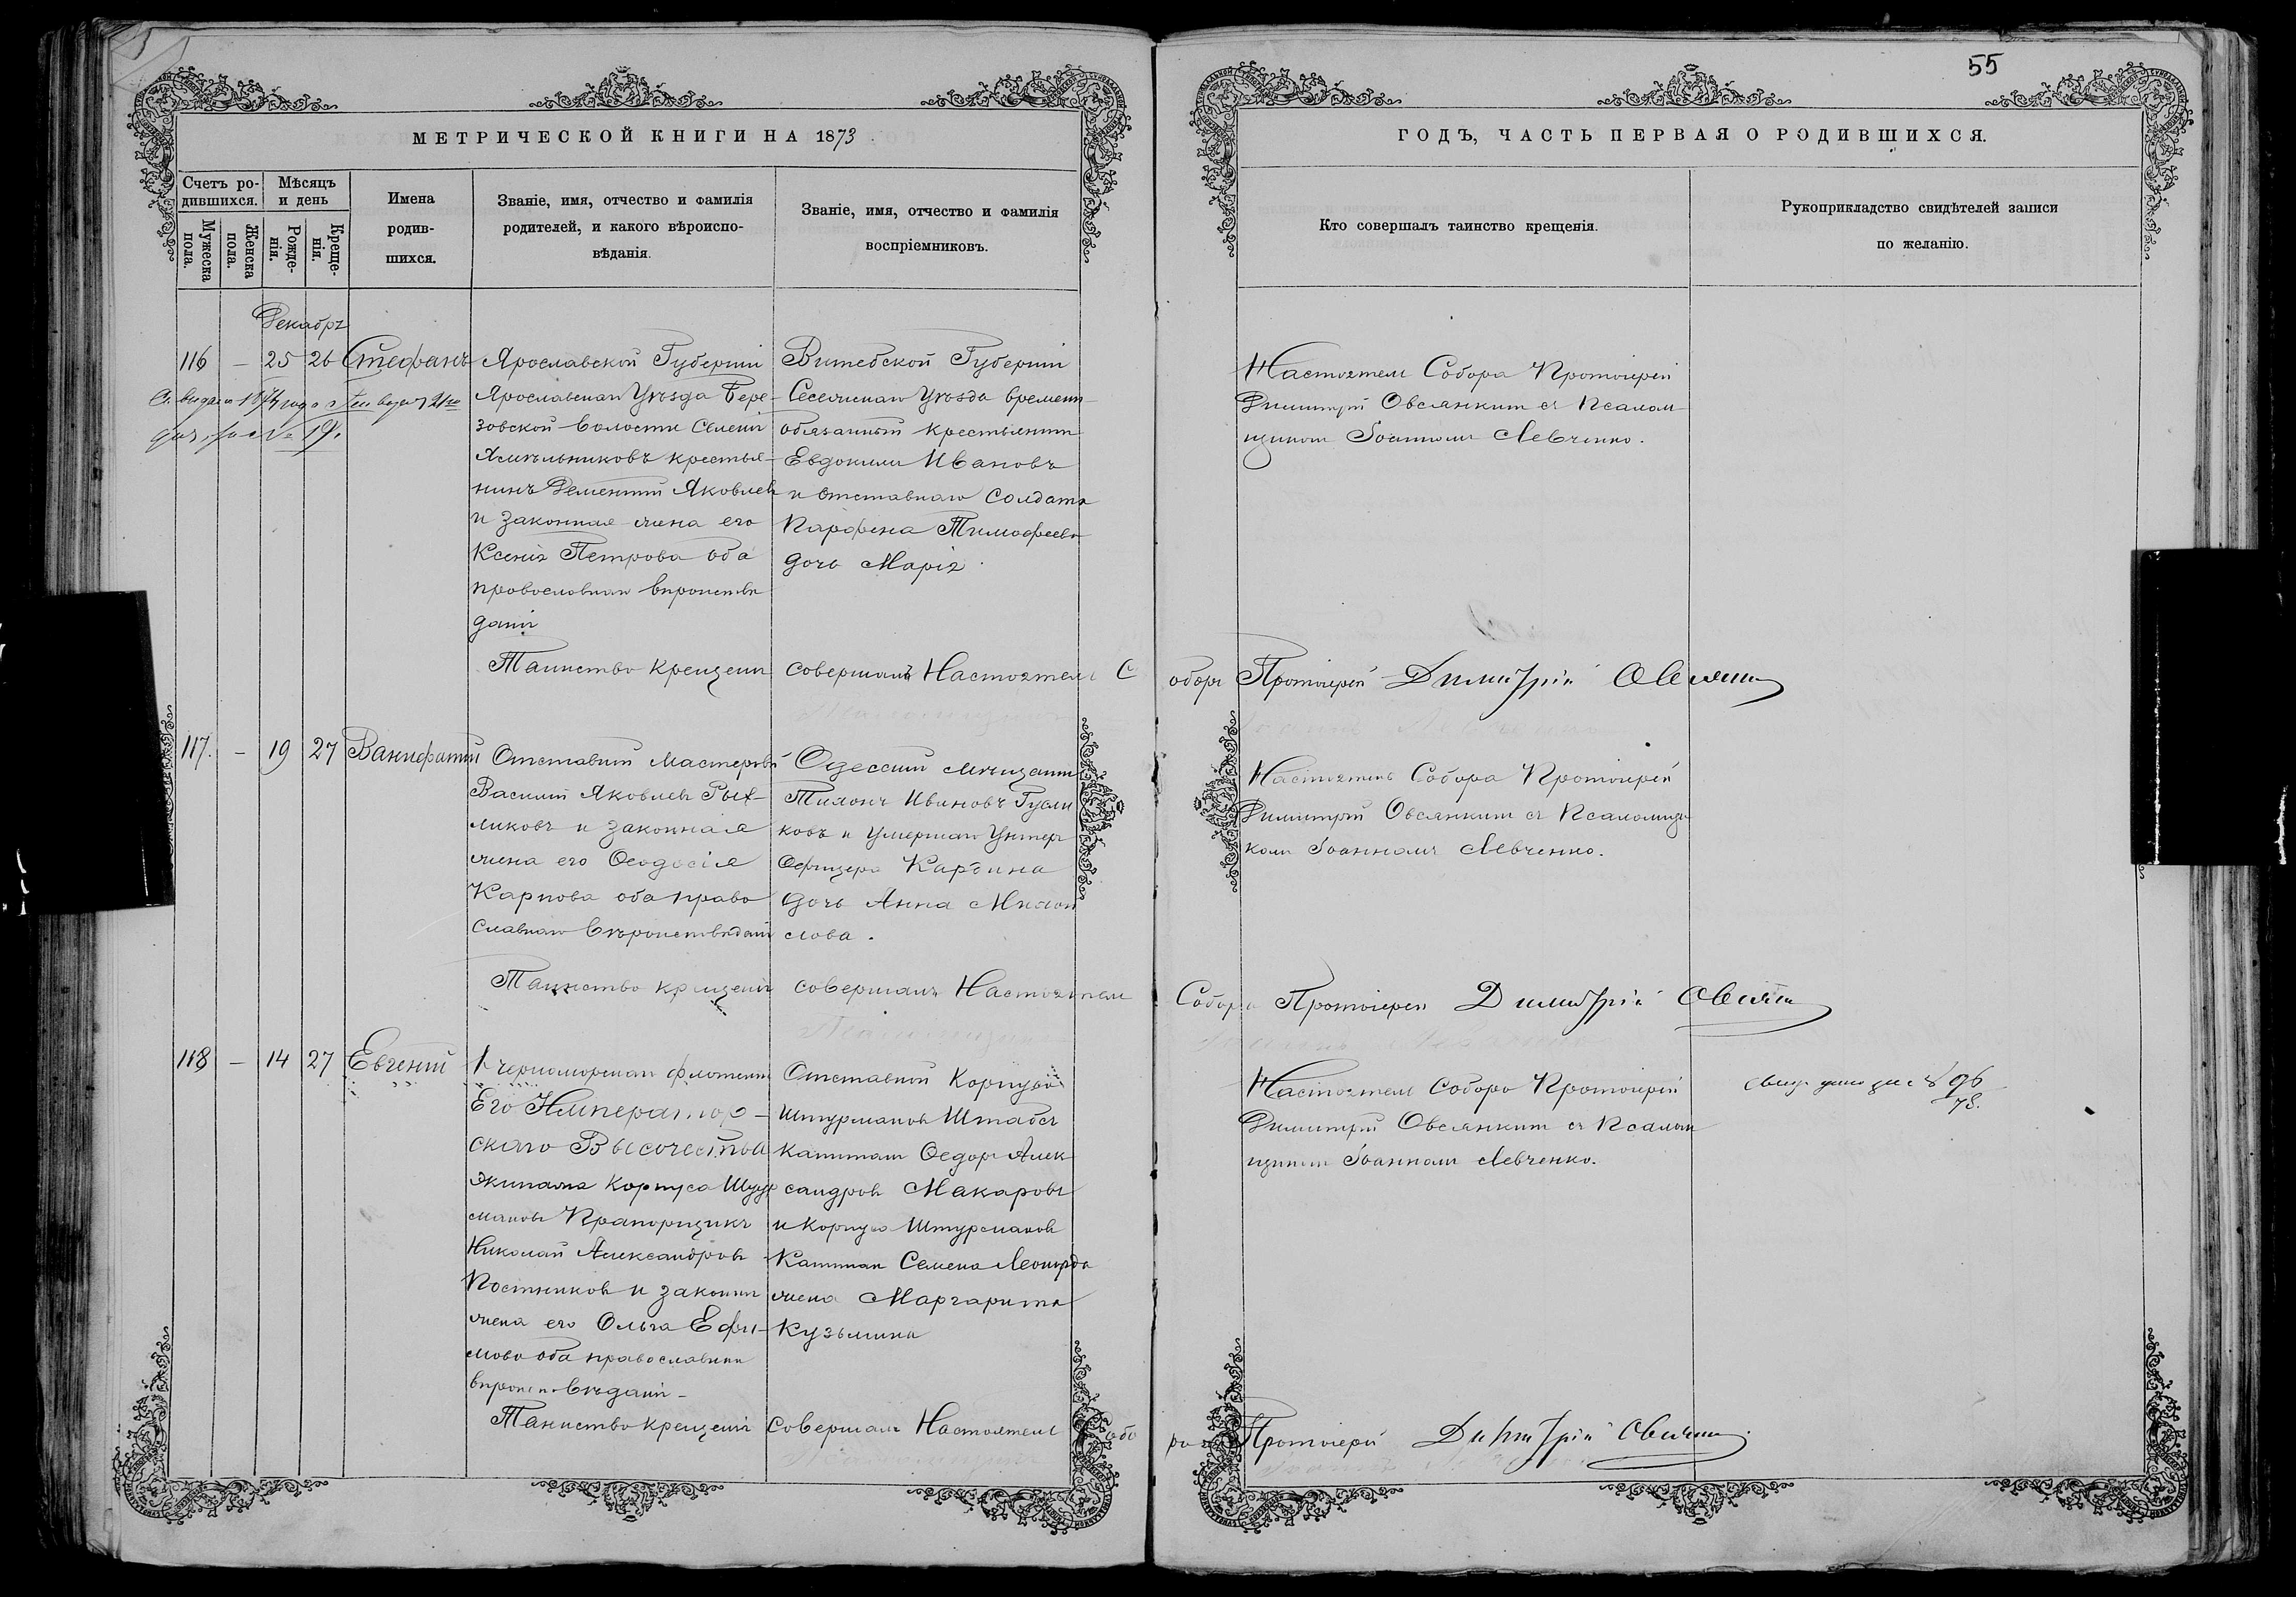 55
МЕТРИЧЕСКОЙ КНИГИ НА 1873
Счетъ ро-
дившихся.
Мѣсяцъ
и день
Мужеска
пола.
Женска
пола.
Рожде-
нія.
Креще-
нія.
Имена
родив-
шихся.
Званіе, имя, отчество и фамилія
родителей, и какого вѣроиспо-
вѣданія.
Званіе, имя, отчество и фамилія
воспріемниковъ.
ГОДЪ, ЧАСТЬ ПЕРВАЯ О РОДИВШИХСЯ.
Кто совершалъ таинство крещенія.
Рукоприкладство свидѣтелей записи
по желанію.
Декабрь
116 – 25 26 Стефанъ
Ярославской Губерніи
Ярославскаго Уѣзда Бере-
зовской Волости Селенія
крестья-
нинъ Дементій Яковлевъ
и законная жена его
Ксенія Петрова оба
православнаго вѣроисповѣ
данія
Витебской Губерніи
уѣзда временно
обязанный крестьянинъ
Евдокимъ Ивановъ
и отставнаго солдата
Парфена Тимофеева
дочь Марія.
Настоятель Собора Протоіерей
Димитрій Овсянкинъ съ Псалом
щикомъ Іоанномъ Левченко.
Таинство крещенія совершалъ Настоятель Собора Протоіерей Димитрій Овсянкин
117. – 19 27 Ванифатій
Отставной Мастеровой
Василій Яковлевъ Рыж-
ликовъ и законная
жена его Ѳеодосія
Карпова оба право
славнаго вѣроисповѣданія
Одесскій мѣщанинъ
Тихонъ Ивановъ Гусли
ковъ и умершаго Унтеръ
Офицера Карпина
дочь Анна Михай
лова.
Настоятель Собора Протоіерей
Димитрій Овсянкинъ съ Псаломщи
комъ Іоанномъ Левченко.
Таинство крещенія совершалъ Настоятель Собора Протоіерей Димитрій Овсянкин
118 – 14 27 Евгеній
1 черноморскаго флотскаго
Его Император-
скаго Высочества
Экипажа Корпуса Штур
мановъ Прапорщикъ
Николай Александровъ
Постниковъ и законная
жена его Ольга Ефи-
мова оба православнаго
вѣроисповѣданія –
Отставной Корпуса
Штурмановъ Штабсъ
Капитанъ Ѳедоръ Алек
сандровъ Макаровъ
и Корпуса Штурмановъ
Капитана Семена Леонарда
жена Маргарита
Кузьмина
Настоятель Собора Протоіерей
Димитрій Овсянкинъ съ Псалом
щикомъ Іоанномъ Левченко.
Таинство крещенія совершалъ Настоятель Собора Протоіерей Димитрій Овсянкин